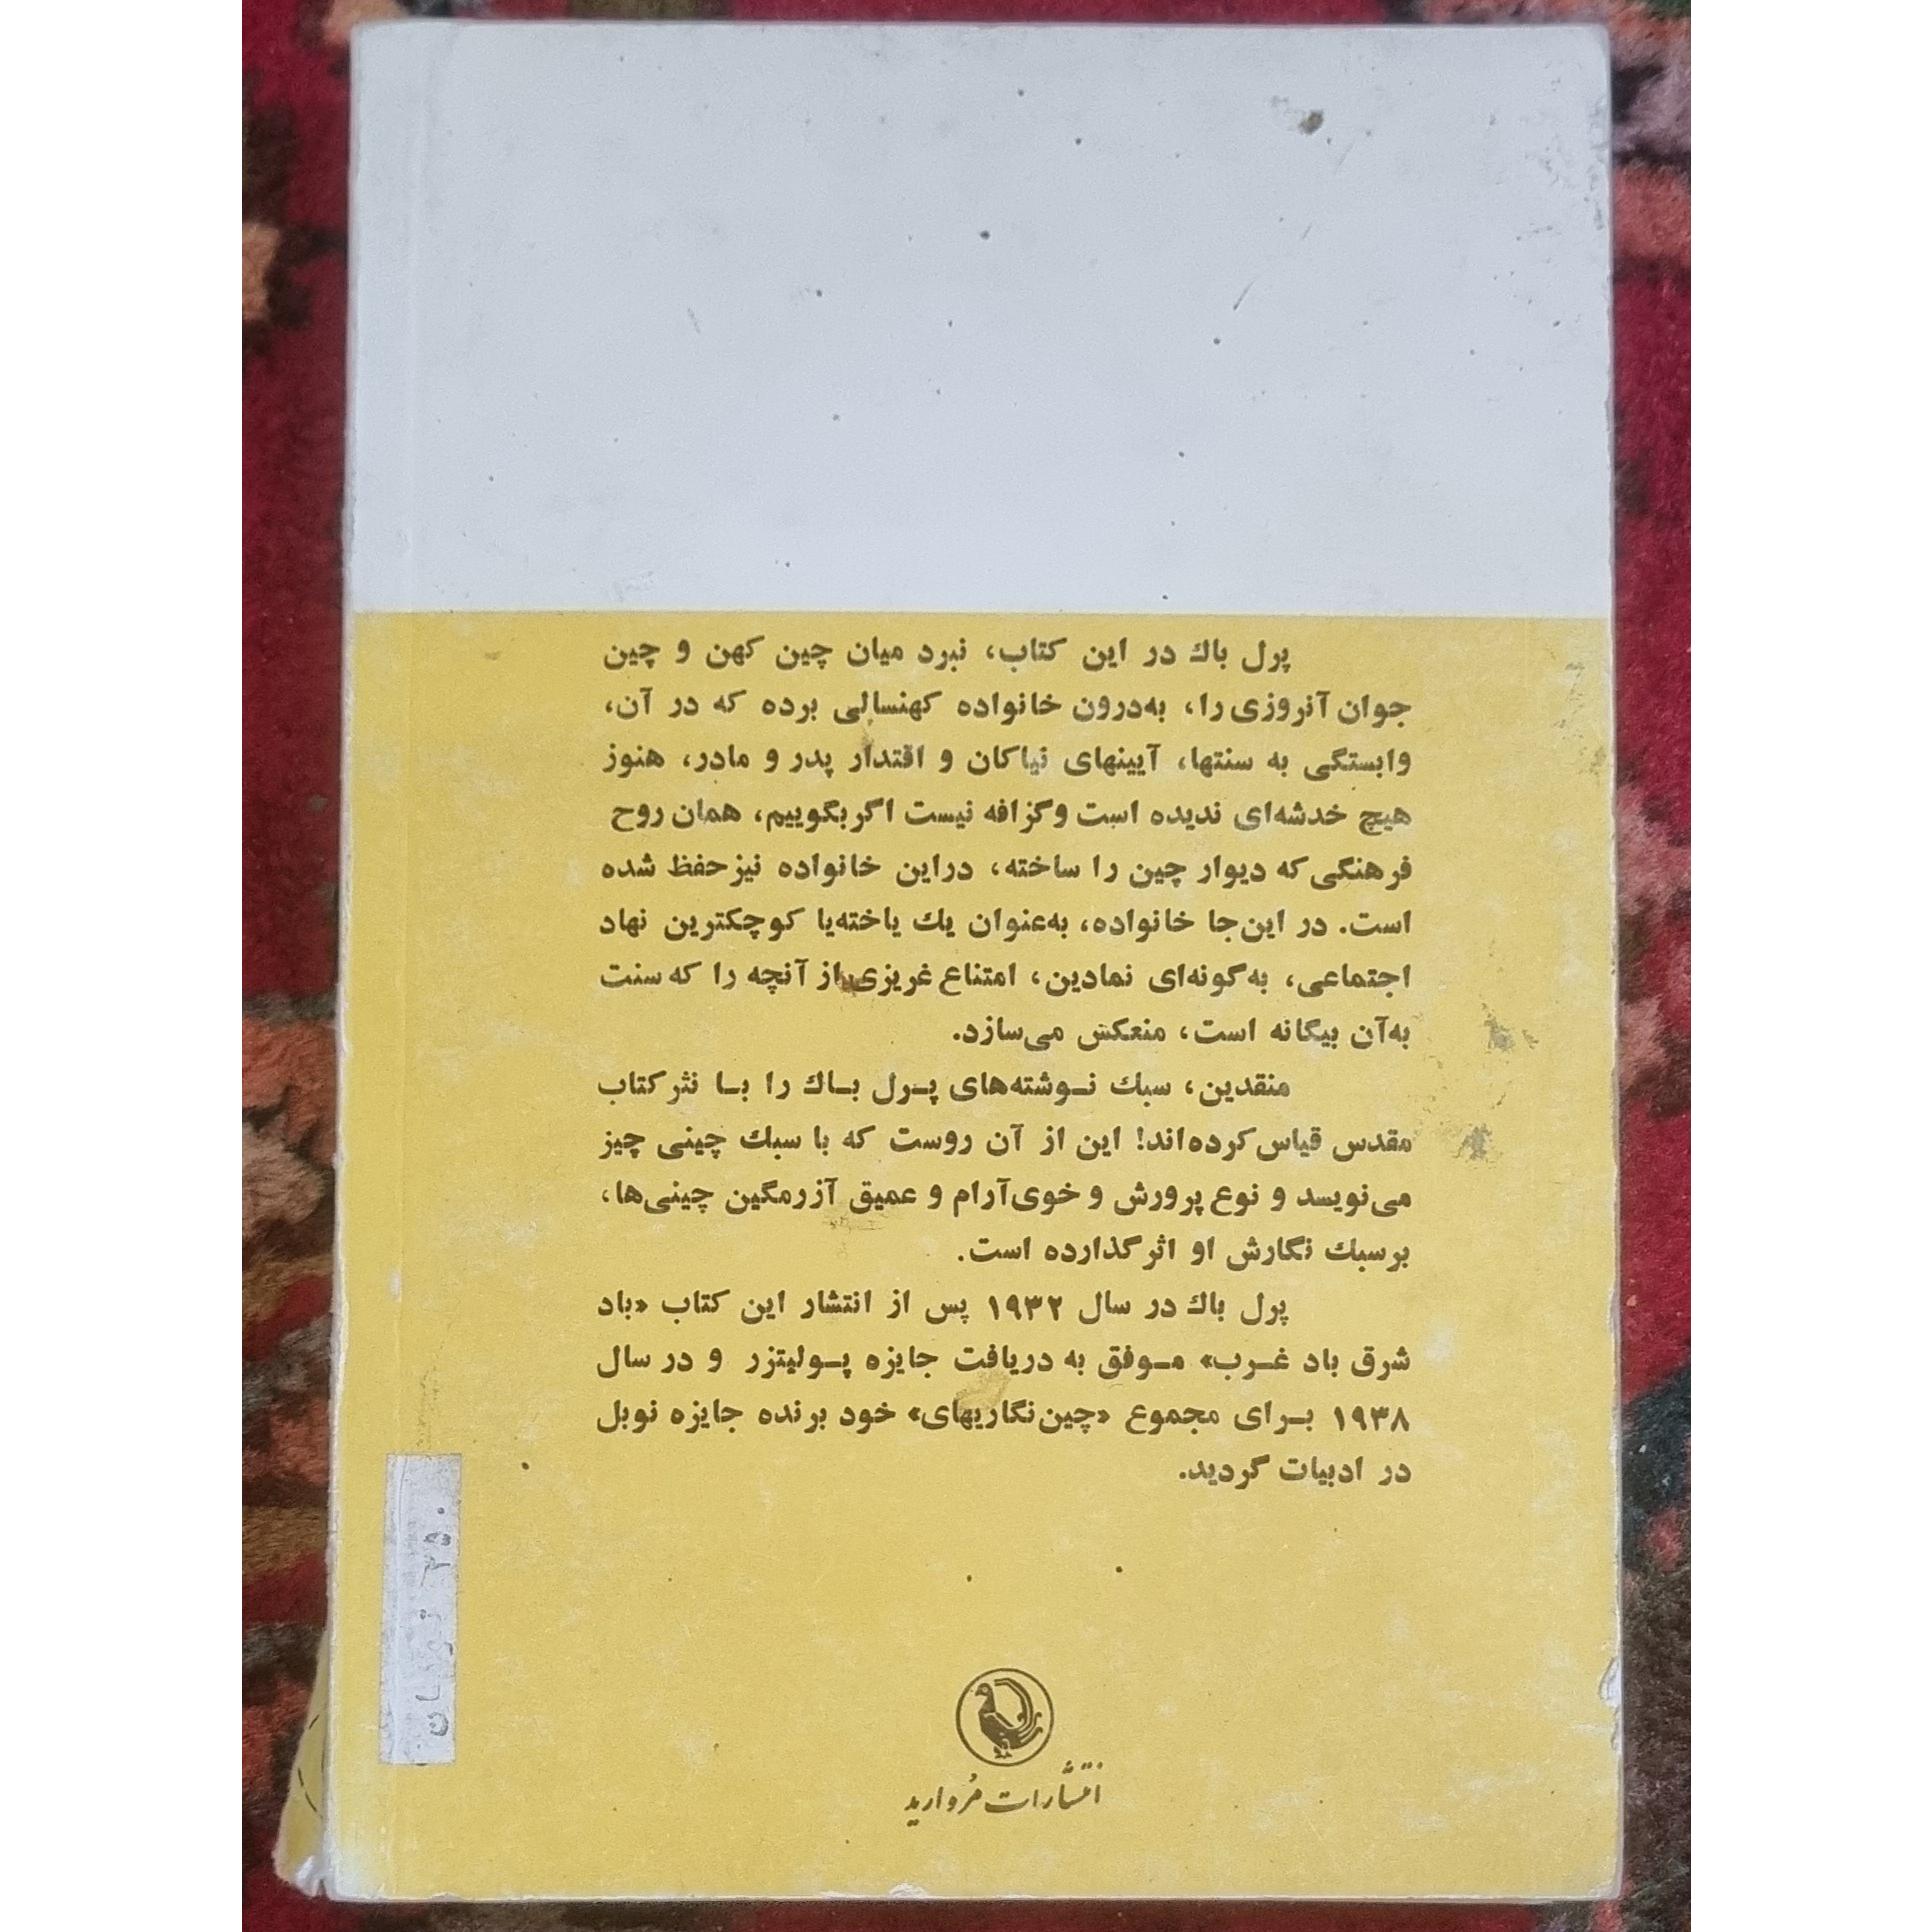 پرل باك در این کتاب، نبرد میان چین کهن و چین
جوان آنروزی را، به‌درون خانواده کهنسالی برده که در آن،
وابستگی به سنتها، آیینهای نیاکان و اقتدار پدر و مادر، هنوز
هیچ خدشه‌ای ندیده است وگزافه نیست اگر بگوییم، همان روح
فرهنگی که دیوار چین را ساخته، دراین خانواده نیز حفظ شده
است. در این‌جا خانواده، به‌عنوان یك یاخته‌یا کوچکترین نهاد
اجتماعی، به‌گونه‌ای نمادین، امتناع غریزی از آنچه را که سنت
به‌آن بیگانه است، منعکس می‌سازد.
منقدین، سبك نـوشته‌های پـرل بـاك را بـا نثر کتاب
مقدس قیاس کرده‌اند! این از آن روست که با سبك چینی چیز
می‌نویسد و نوع پرورش و خوی آرام و عمیق آزرمگین چینی‌ها،
برسبك نگارش او اثر گذارده است.
پرل باك در سال ۱۹۳۲ پس از انتشار این کتاب «باد
شرق باد غـرب» مـوفق به دریافت جایزه پـولیتزر و در سال
۱۹۳۸ بـرای مجموع «چین‌نگاریهای» خود برنده جایزه نوبل
در ادبیات گردید.
۳۵۰ تومان
انتشارات مُروارید